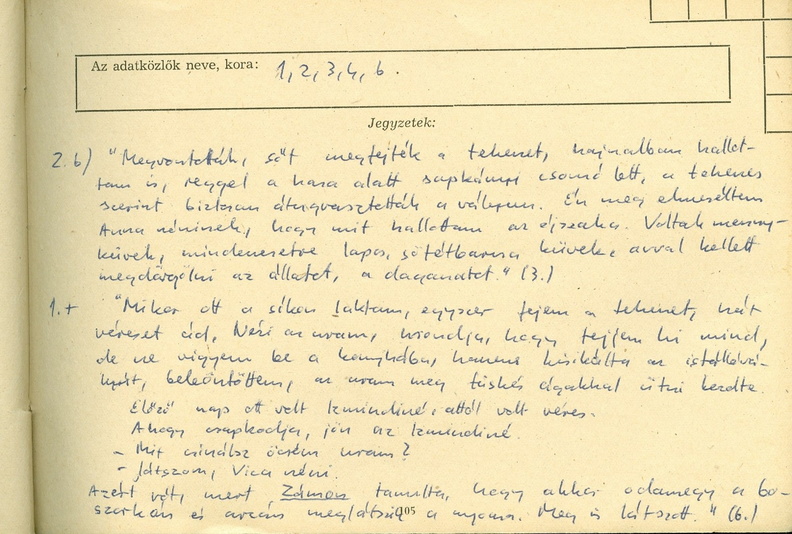 Az adatközlők neve, kora: 1, 2, 3, 4, 6.
Jegyzetek:
2. b) "Megrontották, sőt megfejték a tehenet, hajnalban hallot-
tam is, reggel a hasa alatt sapkányi csomó lett, a tehenes
szerint biztosan átugrasztották a Én meg elmeséltem
Anna néninek, hogy mit hallottam az éjszaka. Voltak menny-
kövek, mindenesetre lapos, sötétbarna kövek, avval kellett
megdörgölni az állatot, a daganatot." (3.)
1. + "Mikor ott a síkon laktam, egyszer fejem a tehenet, hát
véreset ád, Néri az uram, mondja, hogy fejjem ki mind,
de ne vigyem be a konyhába, hanem kisikálta az istállóvá-
beleöntöttem, az uram meg tüskés ágakkal ütni kezdte.
Előző nap ott volt Izmindiné, attól volt véres.
Ahogy csapkodja, jön az Izmindiné.
- Mit csinálsz öcsém uram?
- Játszom, Vica néni.
Azért jött, mert Zámon tanulta, hogy akkor odamegy a bo-
szorkán és arcán meglátszik a nyoma. Meg is látszott." (6.)
105